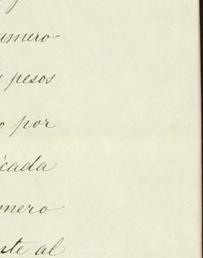 umero
pesos
o por
icada
mero
nte al